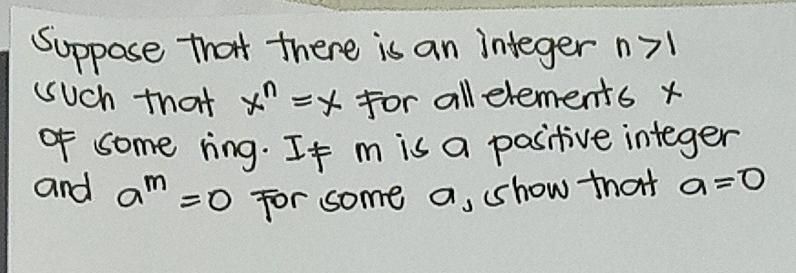 Suppose that there is an integer n>1
such that xⁿ = x for all elements x
of some ring. If m is a positive integer
and aᵐ = 0 for some a, show that a=0